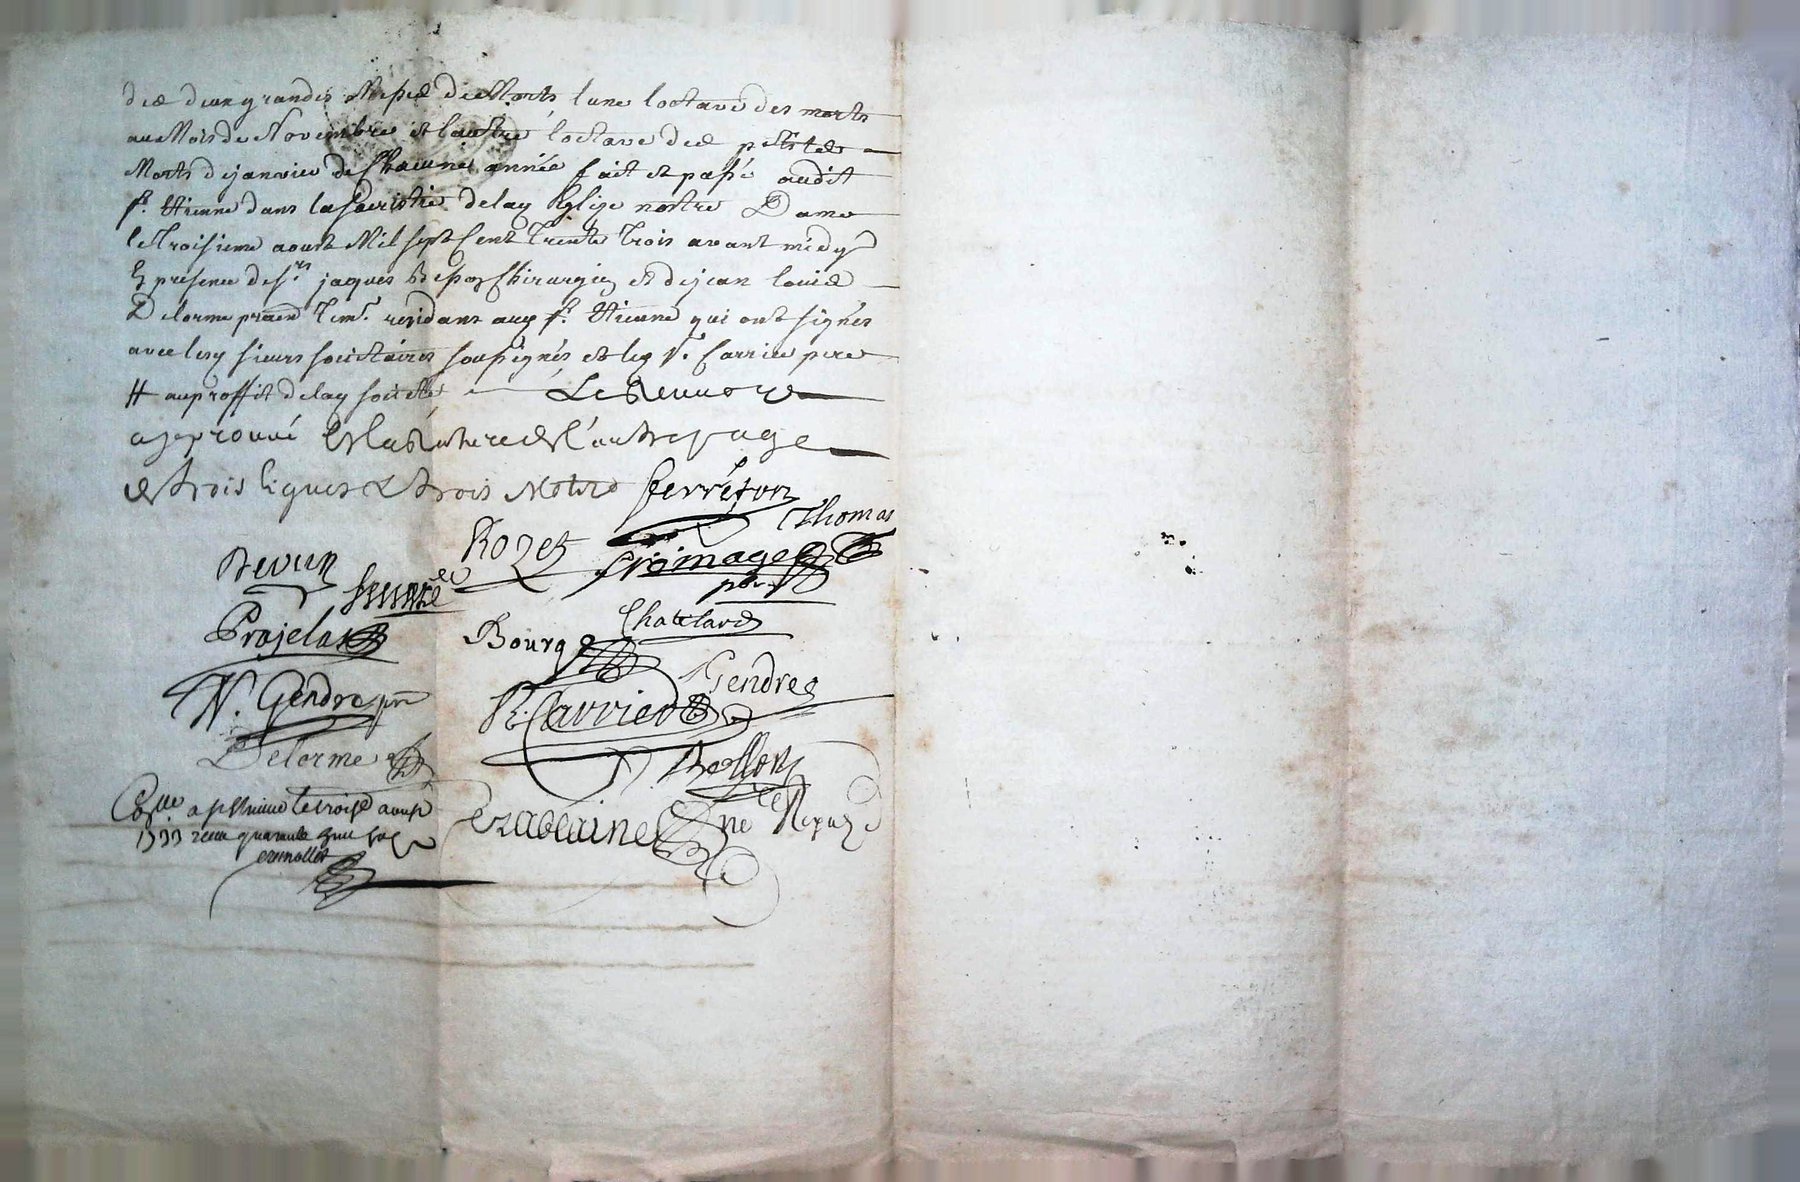 des deux grandes Messes des Morts, lune loctave des morts
au Mois de Novembre et lautre loctave des petites
Morts de janvier de Chacune année fait et passé audit
st. Etienne dans la sacristie delad Eglise nostre Dame
le Troisieme aoust Mil sept Cent Trente Trois avant midy
En presence de srs jaques Besson Chirurgien et de jean louis
Delorme residans aud st. Etienne qui ont signés
avec lesd sieurs societaires soussignés et led sr. Carrier pere
# au proffit delad societé
approuvé Et la rature de l'autre page
de trois lignes & trois Mots ferréton
Thomas
Rozet
fromage
Devun
pbr
Prajelas
Chatelard
Bourg
Gendre
N. Gendre prr
Carrier
Delorme
Besson
Collé a st Etienne le trois aoust
1733 receu quarante